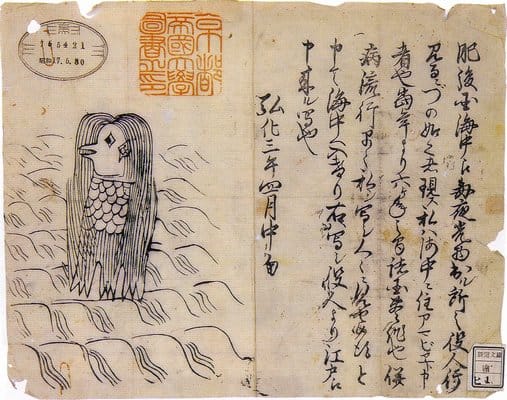 肥後国海中え毎夜光物出ル所之役人行
見るニづの如之者現ス私ハ海中ニ住アマビヱト申
者也當年より六ヶ年之間諸国豊作也併
病流行早々私シ写シ人々ニ見せ候得と
申て海中へ入けり右写シ役人より江戸え
申来ル写也
弘化三年四月中旬
京都
帝國大學
圖書之印
165421
昭和17.5.30